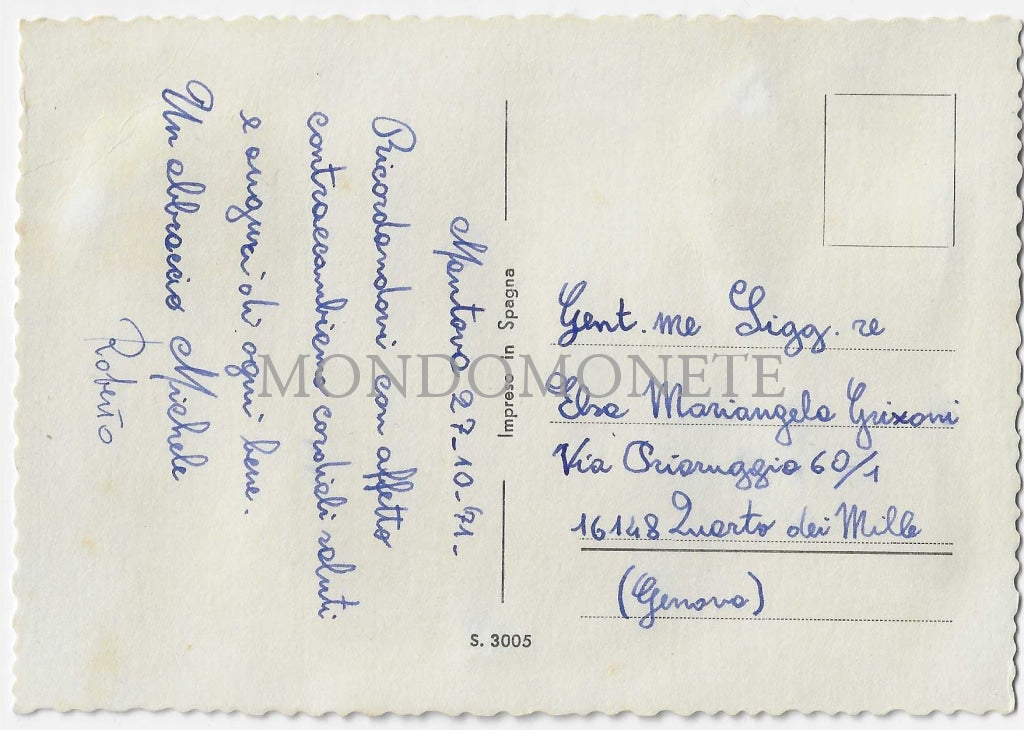 Mantova 27-10-'71-
Ricordandovi con affetto
contraccambiamo cordiali saluti
e auguri di ogni bene.
Un abbraccio Michele
Roberto
Imprese in Spagna
S. 3005
Gent.me Sigg.re
Elsa Mariangela Grixoni
Via Prioruggio 60/1
16148 Quarto dei Mille
(Genova)
MONDOMONETE